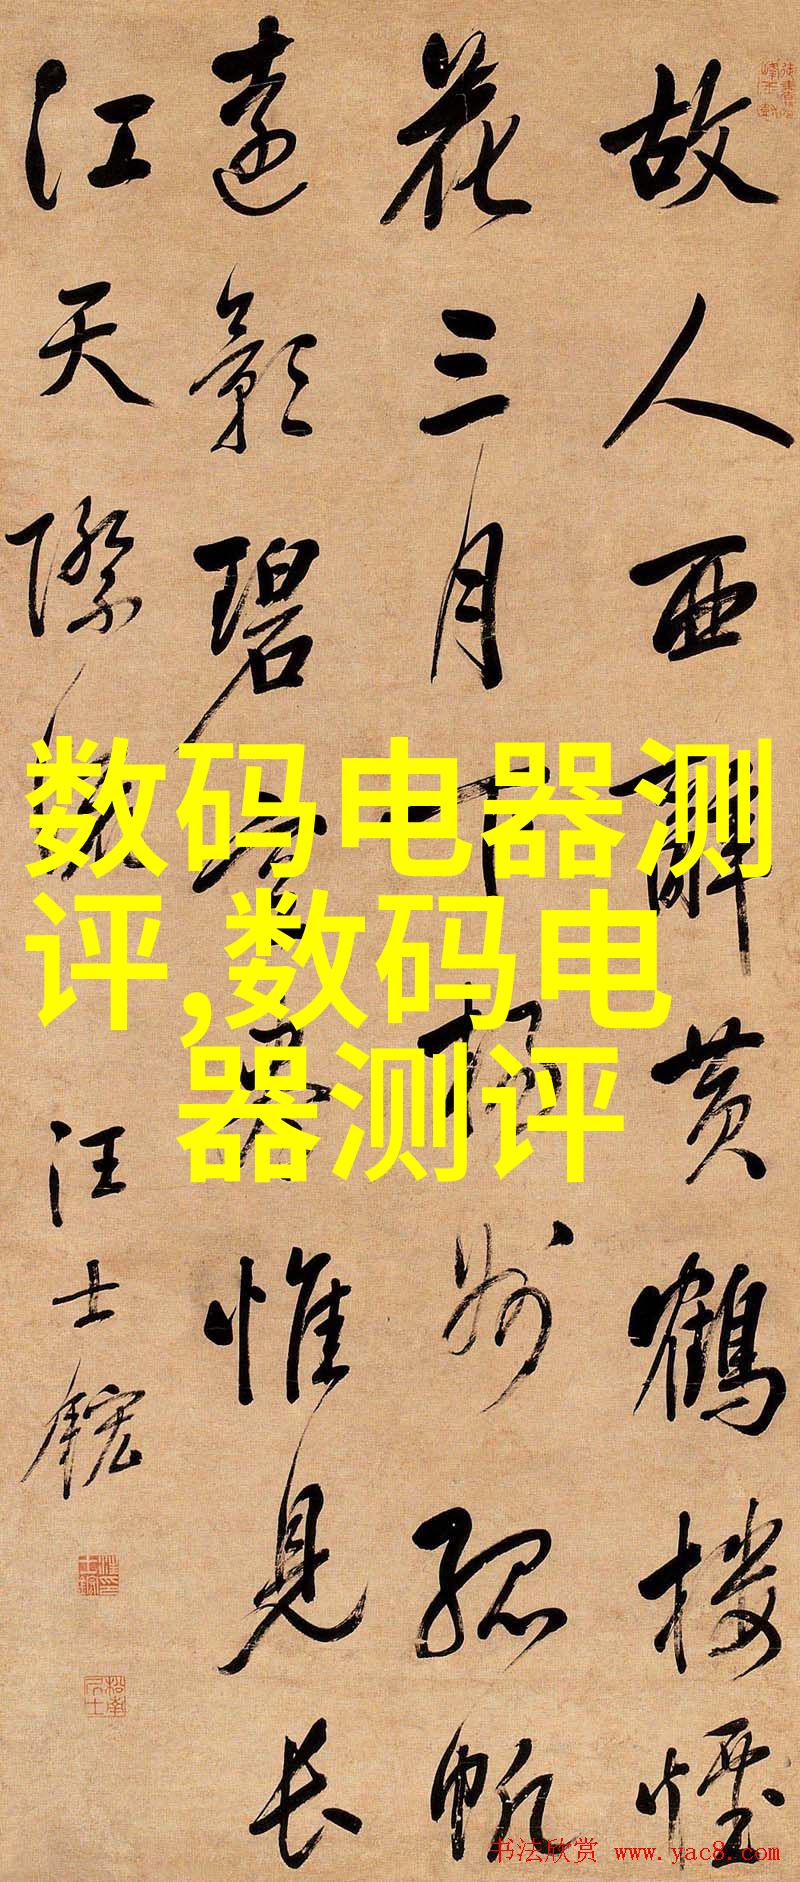 故人西辭黃鶴樓煙
花三月下揚州孤帆
遠影碧空盡惟見長
江天際流
汪士鋐
数码电器测
评,数码电
器测评
书法欣赏 www.yac8.com